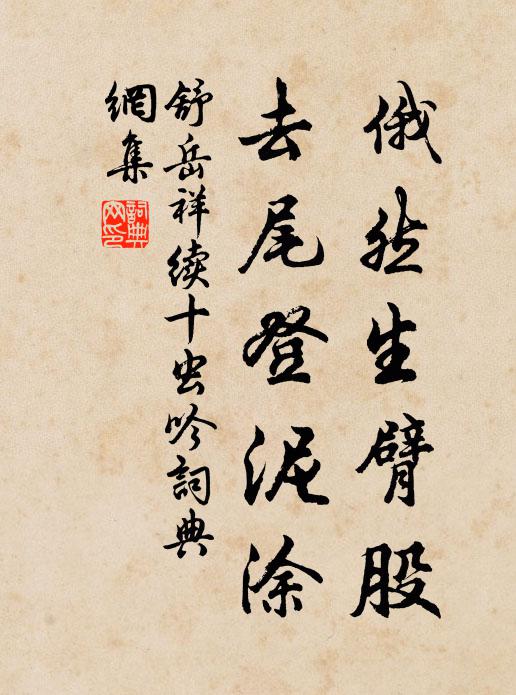 俄然生臂股
去尾登泥涂
舒岳祥续十虫吟詞典
網集
詞典
文印